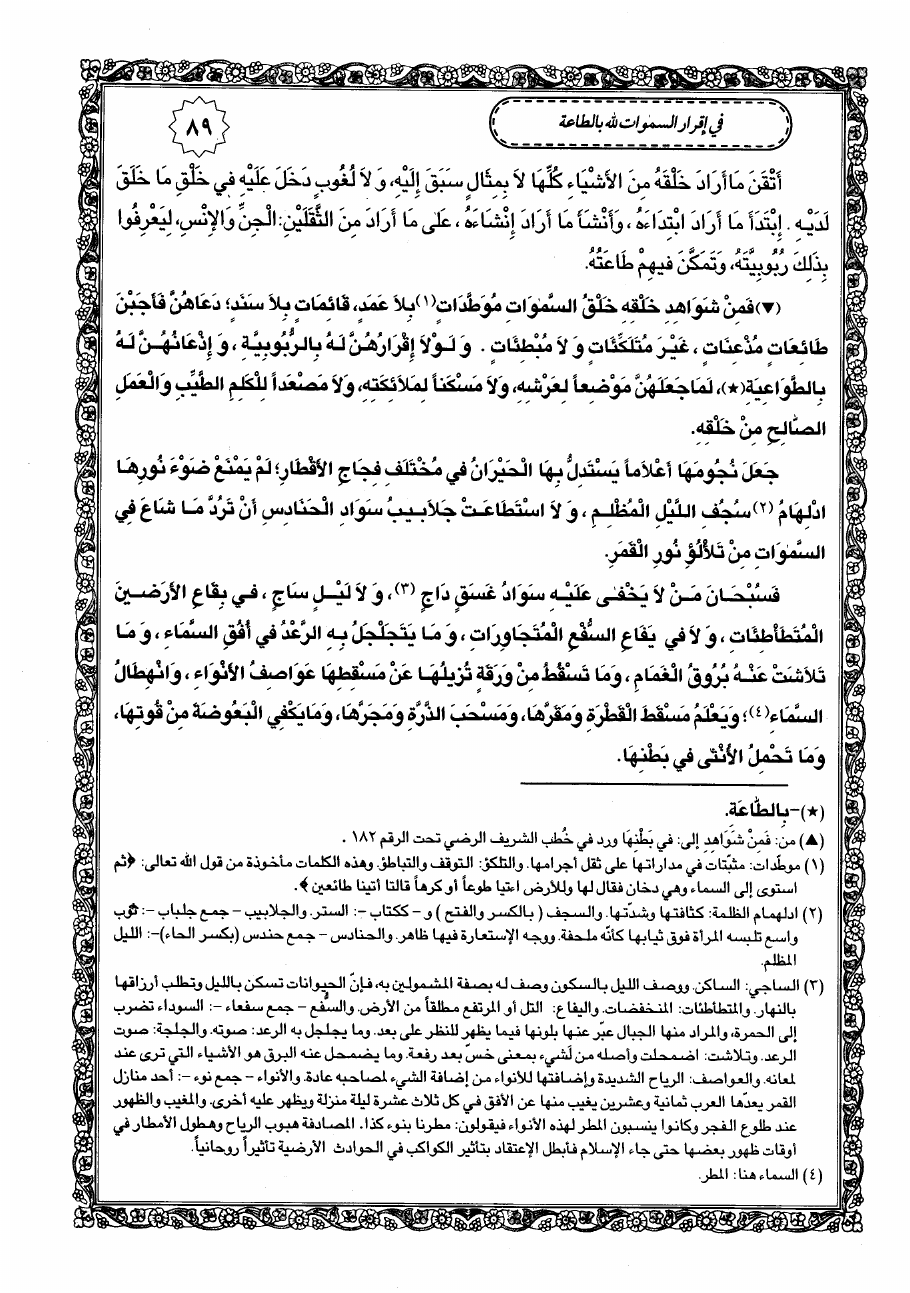 في إقرار السمٰوات لله بالطاعة
٨٩
أَتْقَنَ مَا أَرَادَ خَلْقَهُ مِنَ الأَشْيَاءِ كُلِّهَا لاَ بِمِثَالٍ سَبَقَ إِلَيْهِ، وَ لاَ لُغُوبٍ دَخَلَ عَلَيْهِ في خَلْقِ مَا خَلَقَ
لَدَيْهِ . إِبْتَدَأَ مَا أَرَادَ ابْتِدَاءَهُ ، وَأَنْشَأَ مَا أَرَادَ إِنْشَاءَهُ ، عَلى مَا أَرَادَ مِنَ الثَّقَلَيْنِ: الْجِنِّ وَالإِنْسِ، لِيَعْرِفُوا
بِذَلِكَ رُبُوبِيَّتَهُ، وَتَمَكَّنَ فيهِمْ طَاعَتُهُ.
(▼) فَمِنْ شَوَاهِدِ خَلْقِهِ خَلْقُ السَّمٰوَاتِ مُوَطَّدَاتٍ (١) بِلاَ عَمَدٍ، قَائِمَاتٍ بِلاَ سَنَدٍ؛ دَعَاهُنَّ فَأَجَبْنَ
طَائِعَاتٍ مُذْعِنَاتٍ ، غَيْرَ مُتَلَكِّئَاتٍ وَ لاَ مُبْطِئَاتٍ . وَ لَوْلاَ إِقْرَارُهُنَّ لَهُ بِالرُّبُوبِيَّةِ ، وَ إِذْعَانُهُنَّ لَهُ
بِالطَّوَاعِيَةِ (★)، لَمَا جَعَلَهُنَّ مَوْضِعاً لِعَرْشِهِ، وَلاَ مَسْكَناً لِمَلاَئِكَتِهِ، وَلاَ مَصْعَداً لِلْكَلِمِ الطَّيِّبِ وَالْعَمَلِ
الصَّالِحِ مِنْ خَلْقِهِ.
جَعَلَ نُجُومَهَا أَعْلاَماً يَسْتَدِلُّ بِهَا الْحَيْرَانُ في مُخْتَلَفِ فِجَاجِ الأَقْطَارِ؛ لَمْ يَمْنَعْ ضَوْءَ نُورِهَا
ادْلِهْمَامُ (٢) سُجُفِ اللَّيْلِ الْمُظْلِمِ ، وَ لاَ اسْتَطَاعَتْ جَلاَبيبُ سَوَادِ الْحَنَادِسِ أَنْ تَرُدَّ مَا شَاعَ فِي
السَّمٰوَاتِ مِنْ تَلأْلُؤِ نُورِ الْقَمَرِ.
فَسُبْحَانَ مَنْ لاَ يَخْفى عَلَيْهِ سَوَادُ غَسَقٍ دَاجٍ (٣) ، وَ لاَ لَيْلٍ سَاجٍ ، في بِقَاعِ الأَرَضينَ
الْمُتَطَأْطِئَاتِ ، وَ لاَ في يَفَاعِ السُّفْعِ الْمُتَجَاوِرَاتِ ، وَ مَا يَتَجَلْجَلُ بِهِ الرَّعْدُ في أُفُقِ السَّمَاءِ ، وَ مَا
تَلاَشَتْ عَنْهُ بُرُوقُ الْغَمَامِ ، وَمَا تَسْقُطُ مِنْ وَرَقَةٍ تُزيلُهَا عَنْ مَسْقَطِهَا عَوَاصِفُ الأَنْوَاءِ ، وَانْهِطَالُ
السَّمَاءِ (٤)؛ وَيَعْلَمُ مَسْقَطَ الْقَطْرَةِ وَمَقَرَّهَا، وَمَسْحَبَ الذَّرَّةِ وَمَجَرَّهَا، وَمَا يَكْفِي الْبَعُوضَةَ مِنْ قُوتِهَا،
وَمَا تَحْمِلُ الأُنْثى في بَطْنِهَا.
(★)- بِالطَّاعَةِ.
(▲) من: فَمِنْ شَوَاهِدِ إلى: في بَطْنِهَا ورد في خُطب الشريف الرضي تحت الرقم ١٨٢ .
(١) موطّدات: مثبتات في مداراتها على ثقل أجرامها. والتلكؤ: التوقف والتباطؤ. وهذه الكلمات مأخوذة من قول الله تعالى: ﴿ثم
استوى إلى السماء وهي دخان فقال لها وللأرض اءتيا طوعاً أو كرهاً قالتا أتينا طائعين﴾.
(٢) ادلهمام الظلمة: كثافتها وشدّتها. والسجف ( بالكسر والفتح ) و - ككتاب -: الستر. والجلابيب - جمع جلباب -: ثوب
واسع تلبسه المرأة فوق ثيابها كأنّه ملحفة. ووجه الإستعارة فيها ظاهر. والحنادس - جمع حندس (بكسر الحاء)-: الليل
المظلم.
(٣) الساجي: الساكن. ووصف الليل بالسكون وصف له بصفة المشمولين به، فإنّ الحيوانات تسكن بالليل وتطلب أرزاقها
بالنهار. والمتطأطئات: المنخفضات. واليفاع: التل أو المرتفع مطلقاً من الأرض. والسفّع - جمع سفعاء -: السوداء تضرب
إلى الحمرة، والمراد منها الجبال عبّر عنها بلونها فيما يظهر للنظر على بعد. وما يجلجل به الرعد: صوته. والجلجة: صوت
الرعد. وتلاشت: اضمحلت وأصله من لَشيء بمعنى خسّ بعد رفعة. وما يضمحل عنه البرق هو الأشياء التي ترى عند
لمعانه. والعواصف: الرياح الشديدة وإضافتها للأنواء من إضافة الشيء لمصاحبه عادة. والأنواء - جمع نوء -: أحد منازل
القمر يعدّها العرب ثمانية وعشرين يغيب منها عن الأفق في كل ثلاث عشرة ليلة منزلة ويظهر عليه أخرى. والمغيب والظهور
عند طلوع الفجر وكانوا ينسبون المطر لهذه الأنواء فيقولون: مطرنا بنوء كذا. المصادفة هبوب الرياح وهطول الأمطار في
أوقات ظهور بعضها حتى جاء الإسلام فأبطل الإعتقاد بتأثير الكواكب في الحوادث الأرضية تأثيراً روحانياً.
(٤) السماء هنا: المطر.